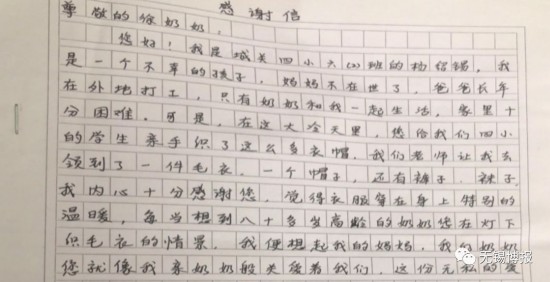 感谢信
尊敬的徐奶奶：
您好！我是城关四小六(2)班的杨绍锡，我
是一个不幸的孩子，妈妈不在世了，爸爸长年
在外地打工，只有奶奶和我一起生活，家里十
分困难，可是，在这大冷天里，您给我们四小
的学生亲手织了这么多衣帽，我们老师让我去
领到了一件毛衣，一个帽子，还有裤子、袜子，
我内心十分感谢您，觉得衣服穿在身上特别的
温暖，每当想到八十多岁高龄的奶奶您在灯下
织毛衣的情景，我便想起我的妈妈，我的奶奶
您就像我亲奶奶般关爱着我们，这份无私的爱
无锡博报